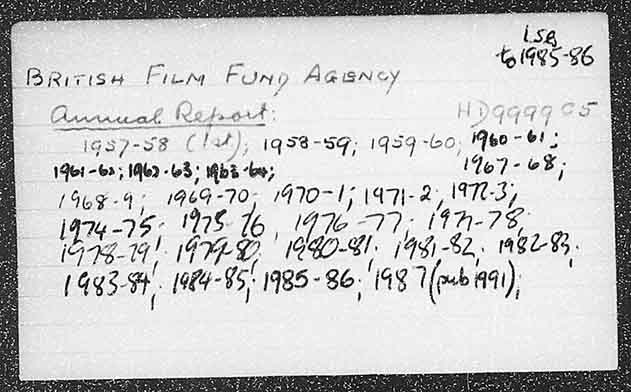 LSB
to 1985-86
BRITISH FILM FUND AGENCY
Annual Report: HD9999 C5
1957-58 (1st); 1958-59; 1959-60; 1960-61;
1961-62; 1962-63; 1963-64; 1967-68;
1968-9; 1969-70; 1970-1; 1971-2; 1972-3;
1974-75 1975-76, 1976-77; 1977-78,
1978-79; 1979-80; 1980-81; 1981-82; 1982-83;
1983-84; 1984-85; 1985-86; 1987 (pub 1991);